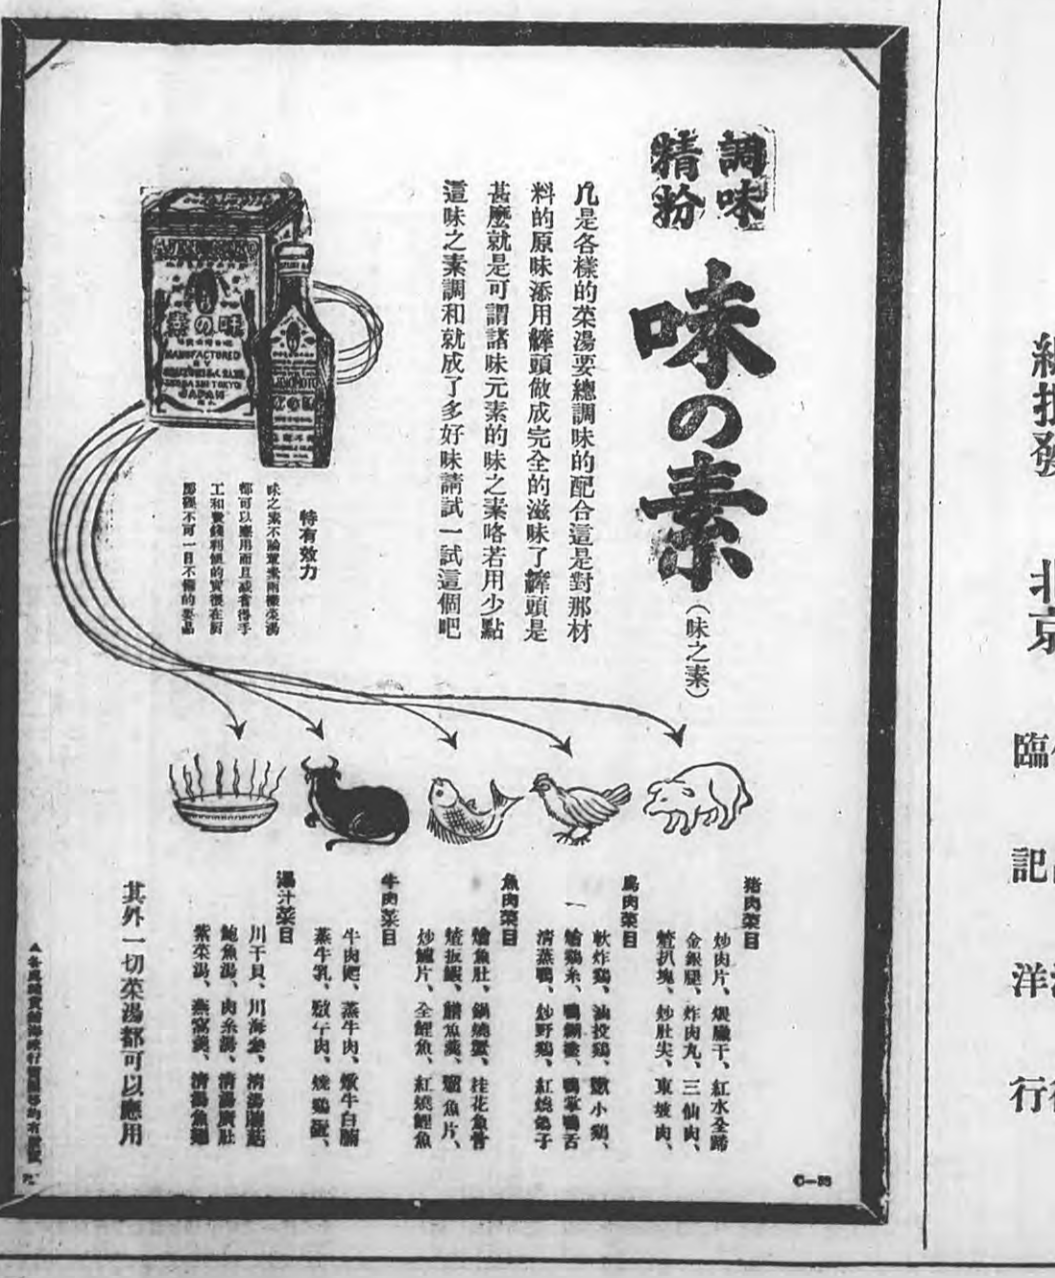 調味
精粉
味の素
(味之素)
凡是各樣的菜湯要總調味的配合這是對那材
料的原味添用罅頭做成完全的滋味了罅頭是
甚麼就是可謂諸味元素的味之素咯若用少點
這味之素調和就成了多好味請試一試這個吧
特有效力
味之素不論葷素兩樣菜湯
都可以應用而且減省得手
工和費錢利便的實很在厨
那裡不可一日不備的要品
味の素
MANUFACTURED
BY
TOKYO
JAPAN
猪肉菜目
炒肉片、煨臟干、紅水全蹄
金銀腿、炸肉丸、三仙肉、
扒塊、炒肚尖、東坡肉、
鳥肉菜目
軟炸鷄、油投鷄、燉小鷄、
燴鷄糸、鴨掌鴨舌
清蒸鴨、炒野鷄、紅燒鴿子
魚肉菜目
燴魚肚、鍋燒蟹、桂花魚骨
魚羹、溜魚片、
炒鱸片、全鯉魚、紅燒鯉魚
牛肉菜目
牛肉廵、蒸牛肉、燉牛白腩
蒸牛乳、燉午肉、燒鷄蛋、
湯汁菜目
川干貝、川海參、清湯
鮑魚湯、肉糸湯、清湯廣肚
紫菜湯、燕窩羹、清湯魚翅
其外一切菜湯都可以應用
C—33
北京
臨
記
洋
行